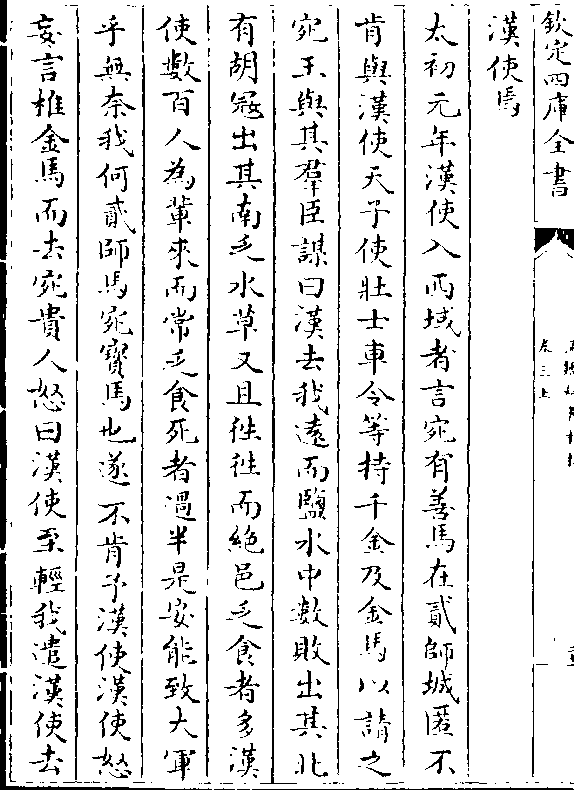 欽定四庫全書
卷三上
漢使馬
太初元年漢使入西域者言宛有善馬在貳師城匿不
肯與漢使天子使壯士車令等持千金及金馬以請之
宛王與其羣臣謀曰漢去我遠而鹽水中數敗出其北
有胡寇出其南乏水草又且徃徃而絶邑乏食者多漢
使數百人為輩來而常乏食死者過半是安能致大軍
乎無奈我何貳師馬宛寶馬也遂不肯予漢使漢使怒
妄言椎金馬而去宛貴人怒曰漢使至輕我遣漢使去